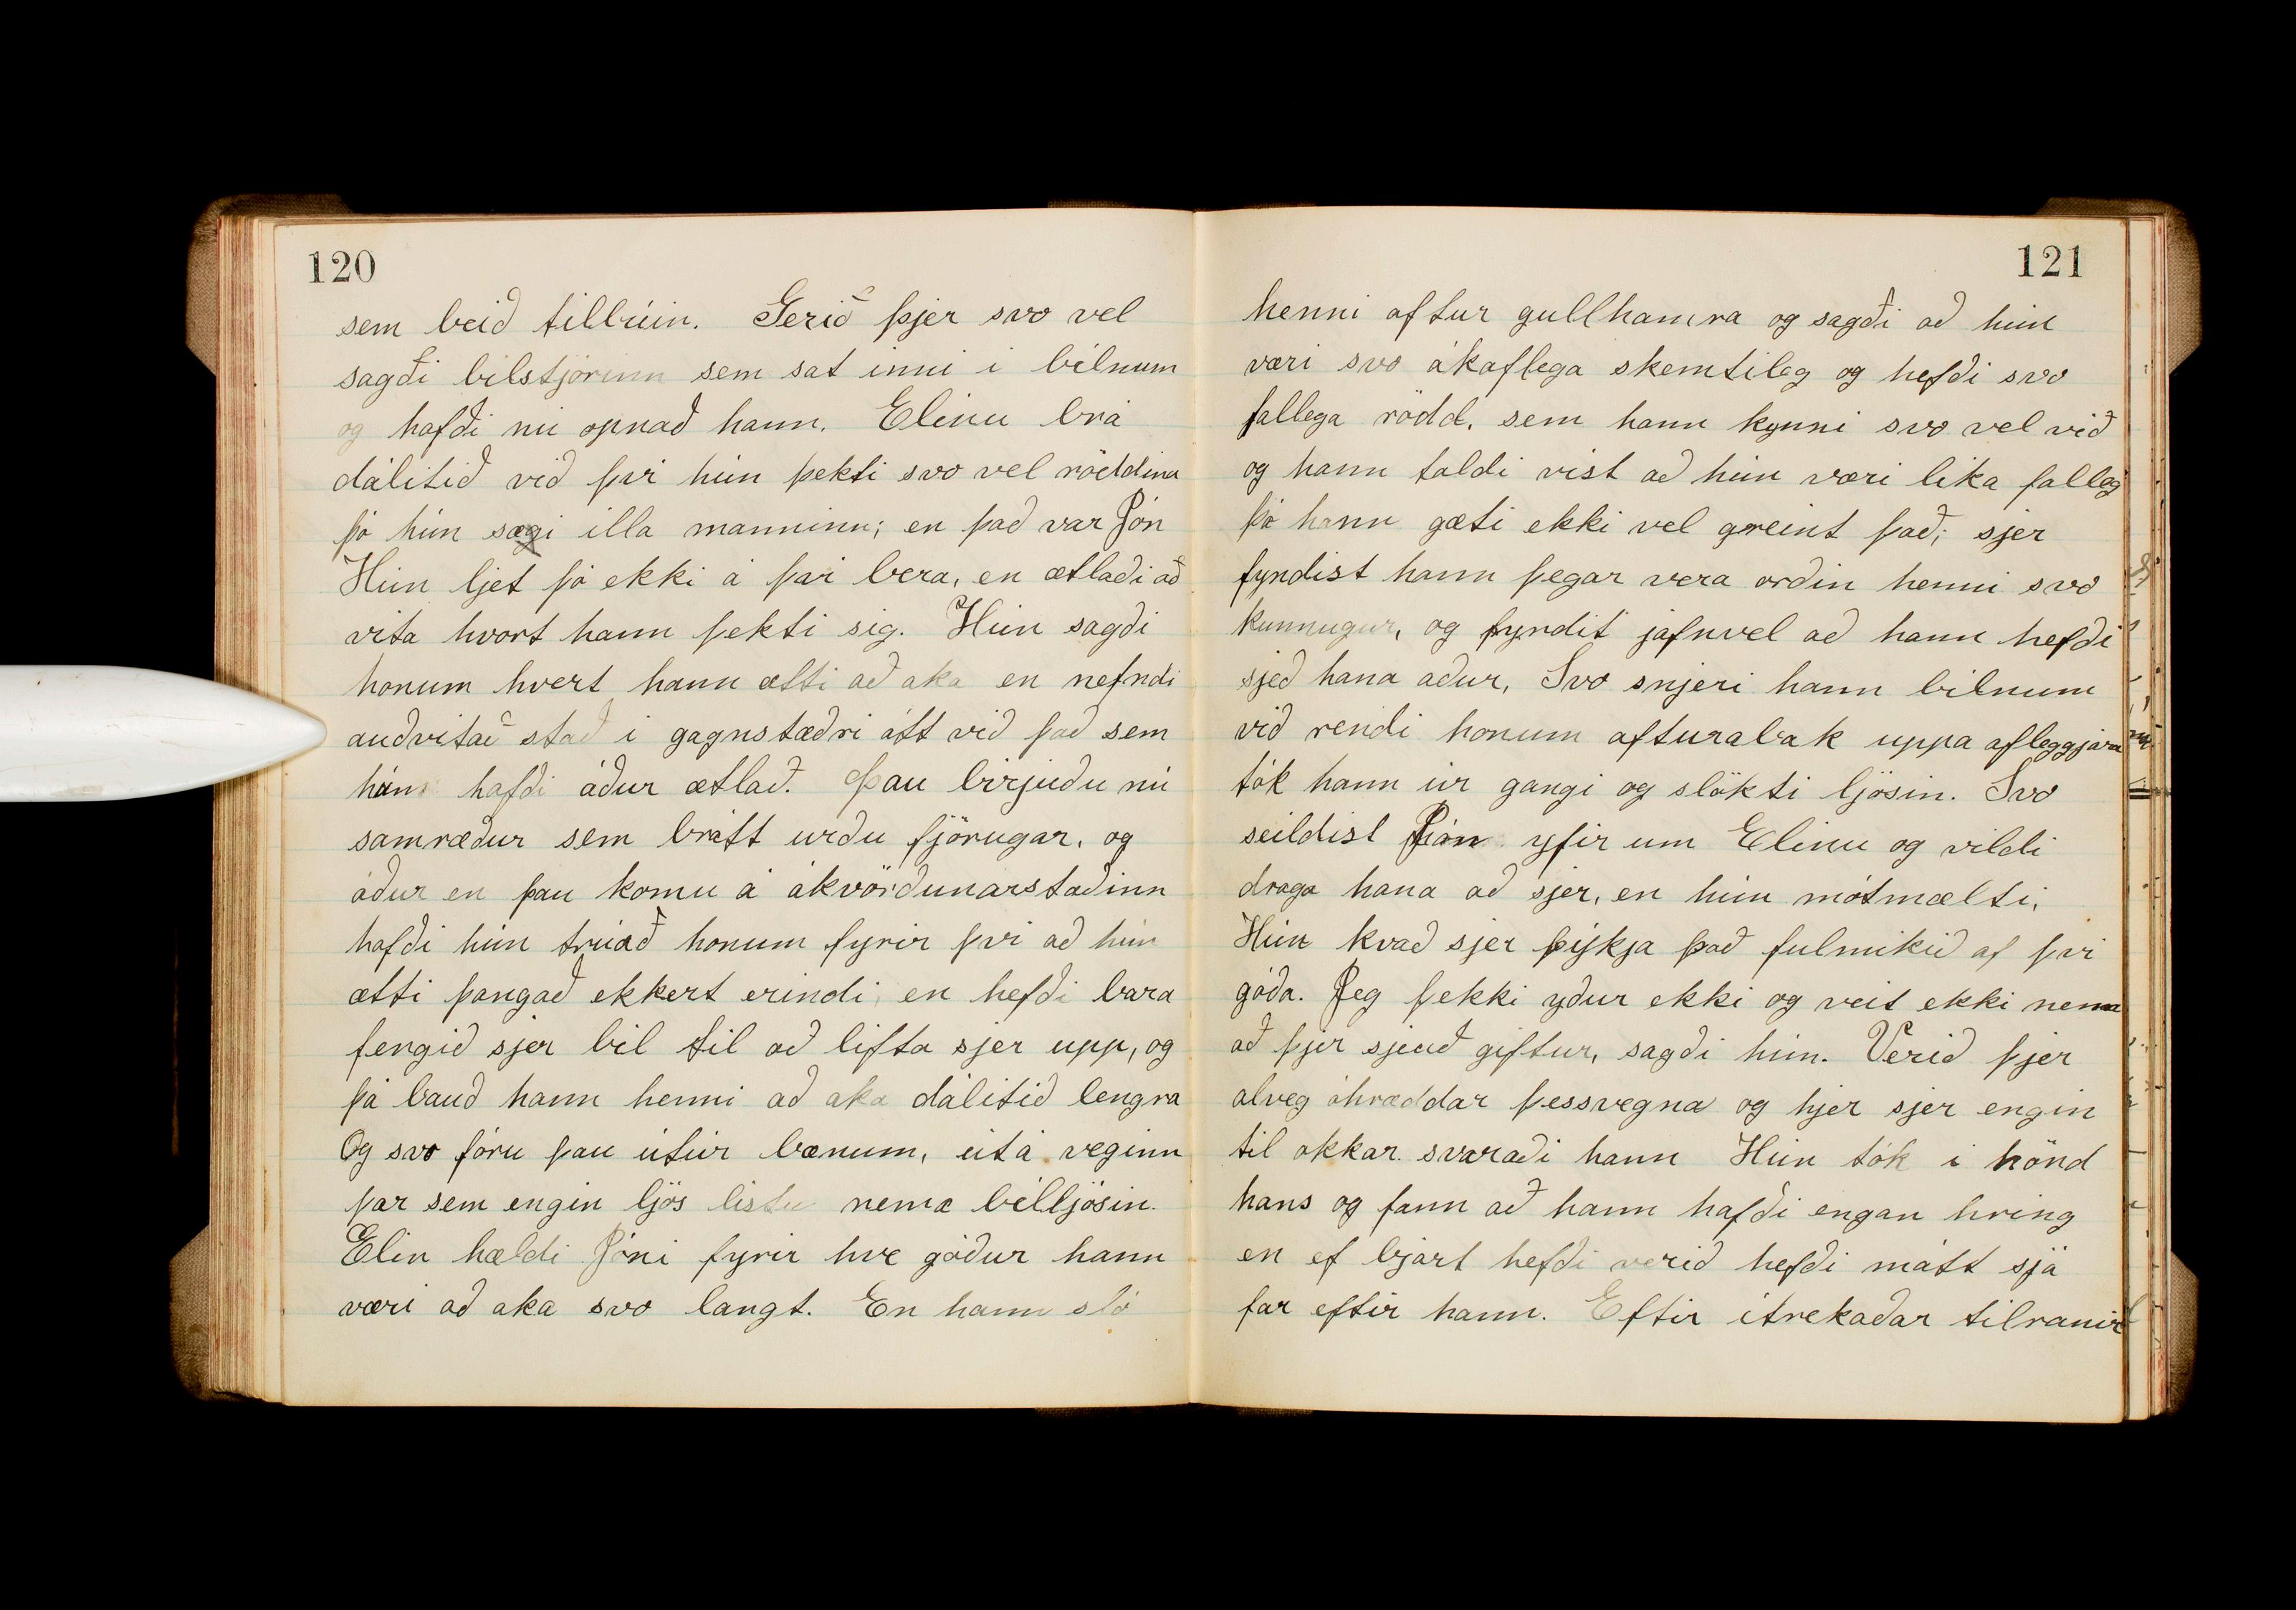 120
sem beið tilbúin. Gerið þjer svo vel
sagði bílstjórinn sem sat inni í bílnum
og hafði nú opnað hann. Elinu brá
dálitið við því hún þekti svo vel röddina
þó hún sæi illa manninn; en það var Jón
Hún ljet þó ekki á því bera, en ætlaði að
vita hvort hann þekti sig. Hún sagði
honum hvert hann ætti að aka en nefndi
auðvitað stað i gagnstæðri átt við það sem
hún hafði áður ætlað. Þau birjuðu nú
samræður sem brátt urðu fjörugar, og
áður en þau komu á ákvörðunarstaðinn
hafði hún trúað honum fyrir því að hún
ætti þangað ekkert erindi, en hefði bara
fengið sjer bíl til að lifta sjer upp, og
þá bauð hann henni að aka dálitið lengra
Og svo fóru þau útúr bænum, útá veginn
þar sem engin ljós listu nema bílljósin.
Elin hældi Jóni fyrir hve góður hann
væri að aka svo langt. En hann sló
121
henni aftur gullhamra og sagði að hún
væri svo ákaflega skemtileg og hefði svo
fallega rödd, sem hann kynni svo vel við
og hann taldi vist að hún væri lika falleg
þó hann gæti ekki vel greint það; sjer
fyndist hann þegar vera orðin henni svo
kunnugur, og fyndit jafnvel að hann hefði
sjeð hana aður, Svo snjeri hann bilnum
við rendi honum afturabak uppa afleggjara
tók hann úr gangi og slökti ljósin. Svo
seildist Jón yfir um Elinu og vildi
draga hana að sjer, en hún mótmælti,
Hún kvað sjer þykja það fulmikið af því
góða. Jeg þekki yður ekki og veit ekki nema
að þjer sjeuð giftur, sagði hún. Verið þjer
alveg óhræddar þessvegna og hjer sjer engin
til okkar svaraði hann Hún tók i hönd
hans og fann að hann hafði engan hring
en ef bjart hefði verið hefði mátt sjá
far eftir hann. Eftir itrekaðar tilraunir